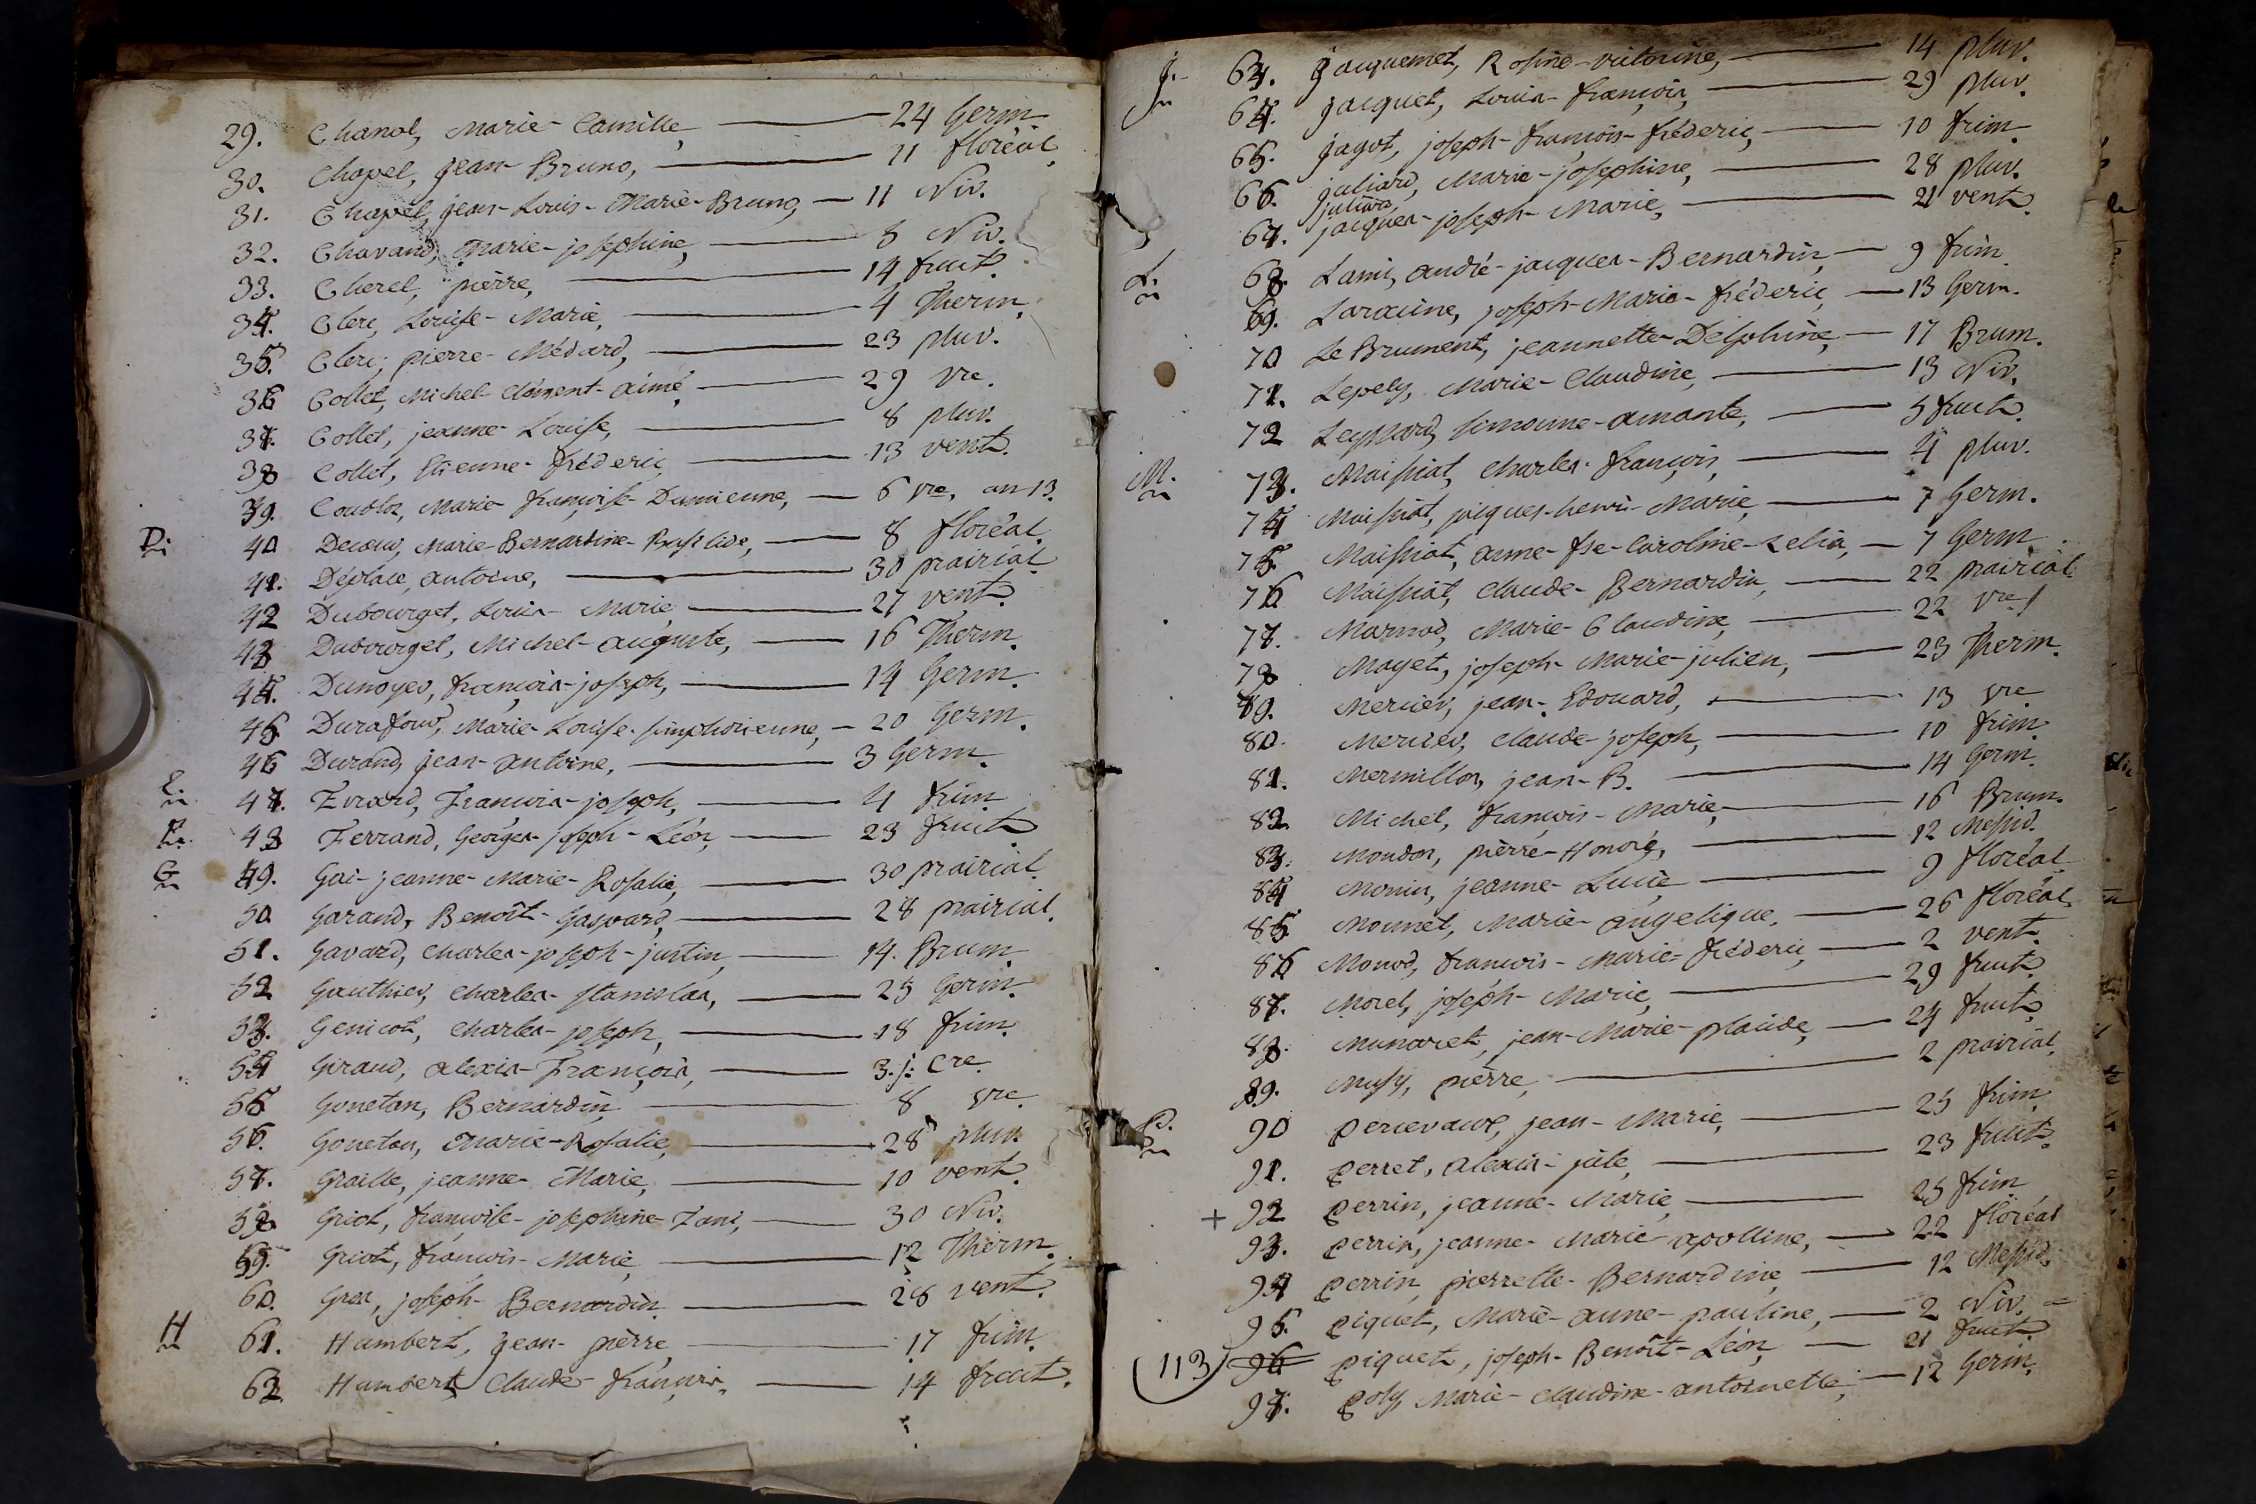 29. Chanal, Marie-Camille, 24 Germ.
30. Chapel, Jean-Bruno, 11 floréal.
31. Chapel, Jean-Louis-Marie-Bruno, 11 Niv.
32. Chavand, Marie-josephine, 5 Niv.
33. Cherel, pierre, 14 fruct.
34. Clerc, Louise-Marie, 4 Therm.
35. Clerc, pierre-Médard, 23 pluv.
36 Collet, Michel-Clément-aimé, 29 vre.
37. Collet, jeanne-Louise, 8 pluv.
38 Collet, Etienne-fréderic, 13 vent.
39. Marie françoise-Damienne, 6 vre, an 13.
D. 40 Marie-Bernardine- 8 floréal.
41. Déplace, antoine, 30 prairial
42 Dubourget, Louis-Marie 27 vent.
43 Dubourget, Michel-auguste, 16 Therm.
44. Dunoyer, françois-joseph, 14 Germ.
45. Durafour, Marie-Louise-simphorienne, 20 Germ.
46 Durand, jean-antoine, 3 Germ.
E. 47. Evrard, François-joseph, 4 frim
F. 48 Ferrand, Georges-joseph-Léon, 23 fruct.
G 49. Gai-jeanne-Marie-Rosalie, 30 prairial.
50 Garand, Benoît-Gaspard, 28 prairial.
51. Gavard, charles-joseph-justin, 14. Brum.
52 Gauthier, charles-stanislas, 25 Germ.
53. Genicot, charles-joseph, 18 frim.
54 Giraud, alexis-François, 3. j. Cre.
55 Gonetan, Bernardin 8 vre.
56. Gonetan, Marie-Rosalie, 28 pluv.
57. Graille, jeanne-Marie, 10 vent.
58. Griot, françoise-josephine- 30 Niv.
59. Griot, françois-Marie, 12 Therm.
60. Gros, joseph-Bernardin 28 vent.
H 61. Humbert, jean-pierre 17 frim.
62 Humbert, Claude-françois, 14 fruct.
J. 63. Jacquemet, Rosine-victorine, 14 pluv.
64. Jacquet, Louis-françois, 29 pluv.
65. Jagot, joseph-françois-fréderic, 10 frim.
66. juliard, Marie-josephine, 28 pluv.
juliard,
67. jacques-joseph-Marie, 21 vent.
L. 68. Lami, andré-jacques-Bernardin, 9 frim
69. Laracine, joseph-Marie-fréderic, 13 Germ.
70 Le Brument, jeannette-Delphine, 17 Brum.
71. Lepely, Marie-Claudine, 13 Niv.
72 Leyssard, simonne-amante, 5 fruct.
M. 73. Maissiat, charles-françois, 4 pluv.
74 Maissiat, jacques-henri-Marie, 7 Germ.
75. Maissiat, anne-fse-Caroline-Zelia, 7 Germ
76 Maissiat, Claude-Bernardin, 22 prairial.
77. Marmod, Marie-Claudine, 22 vre.
78 Mayet, joseph-Marie-julien, 23 Therm.
79. Mercier, jean-Edouard, 13 vre
80. Mercier, claude-joseph, 10 frim.
81. Mermillon, jean-B. 14 Germ.
82. Michel, françois-Marie, 16 Brum.
83. Moudon, pierre-Honoré, 12 Messid.
84 Monin, jeanne-Lucie 9 floréal
85. Monnet, Marie-angelique, 26 floréal
86 Monod, françois-Marie-fréderic, 2 vent.
87. Morel, joseph-Marie, 29 fruct.
88. Munaret, jean-Marie-placide, 24 fruct.
89. Musy, pierre, 2 prairial.
P. 90 jean-Marie, 25 frim.
91. perret, alexis-jule, 23 fruct.
+ 92 perrin, jeanne-Marie, 25 frim
93. perrin, jeanne-Marie-apolline, 22 floréal
94 perrin, pierrette-Bernardine 12 Messid.
95. piquet, Marie-anne-pauline, 2 Niv. =
(113) 96 piquet, joseph-Benoît-Léon, 21 fruct.
97. poly, Marie-Claudine-antoinette, 12 Germ.